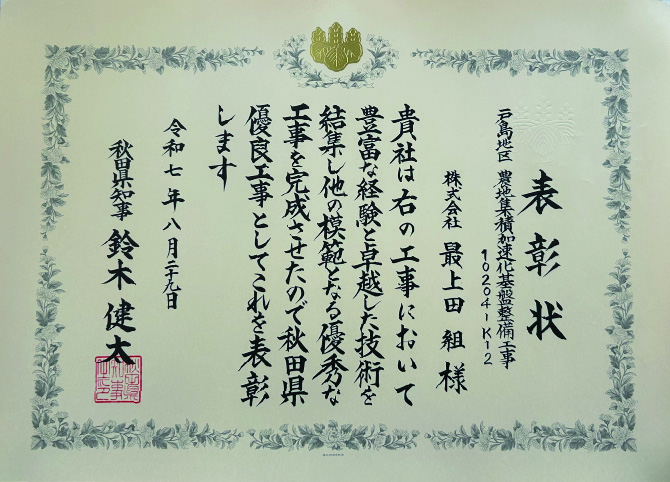 表彰状
石島地区 農地集積加速化基盤整備工事
102041-K12
株式会社 最上田組 様
貴社は右の工事において
豊富な経験と卓越した技術を
結集し他の模範となる優秀な
工事を完成させたので秋田県
優良工事としてこれを表彰
します
令和七年八月二十九日
秋田県知事 鈴木健太